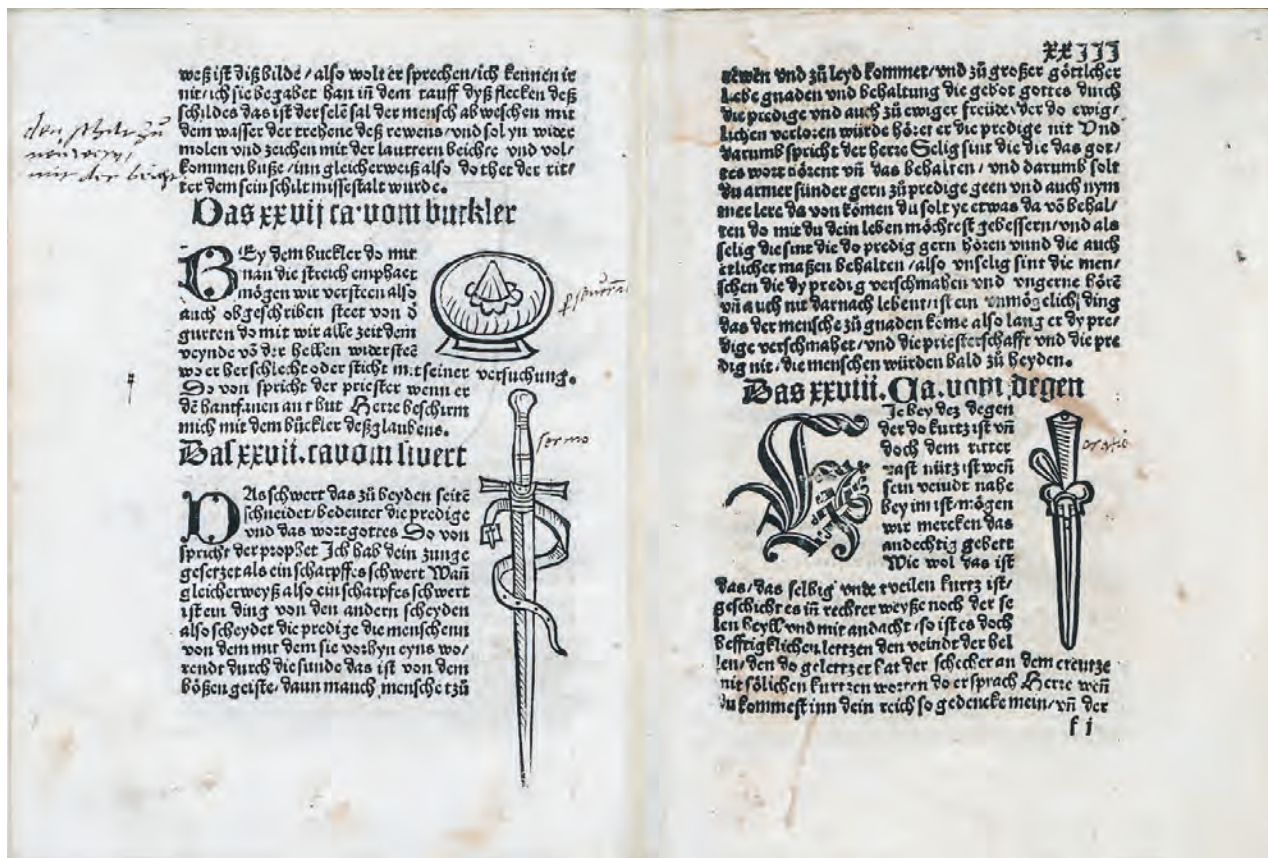 weß ist dißbilde/also wolt er sprechen/ich kennen ir
nit/ich sie begabet han in dem tauff dyß flecken deß
schildes das ist der selē sal der mensch ab weschen mit
dem wasser der trehene deß rewens/vnd sol yn wider
molen vnd zeichen mit der lauttern beichte vnd vol/
kommen buße/inn gleicherweiß also do thet der rit/
ter dem sein schilt missestalt wurde.
Das xxvij ca·vom buckler
BEy dem buckler do mit
man die streich emphaet
mögen wir versteen also
auch obgeschriben steet von d̄
gurten do mit wir alle zeit dem
veynde vō der hellen widersteē
wo er her schlecht oder sticht mit seiner versuchung.
So von spricht der priester wenn er
dē hantfanen an thut Herre beschirm
mich mit dem bückler deßglaubens.
sermo
Das xxvii.ca vom swert
DAs schwert das zů beyden seitē
schneidet/bedeutet die predige
vnd das wort gottes So von
spricht der prophet Ich hab dein zunge
gesetzet als ein scharpffes schwert Wañ
gleicherweyß also ein scharpfes schwert
ist ein ding von den andern scheyden
also scheydet die predige die menschenn
von dem mit dem sie vorhyn eyns wo/
rendt durch die sunde das ist von dem
bößen geiste/dann manch mensche tzů
XXIII
rewen vnd zů leyd kommet/vnd zů großer göttlicher
liebe gnaden vnd behaltung die gebot gottes durch
die predige vnd auch zů ewiger freüde/der do ewig/
lichen verloren würde höret er die predige nit Vnd
darumb spricht der herre Selig sint die die das got/
tes wort hörent vñ das behalten/vnd darumb solt
du armer sünder gern zů predige geen vnd auch nym
mer lere da von kōmen du solt ye etwas da vō behal/
ten do mit du dein leben möchtest gebessern/vnd als
selig die sint die do predig gern hören vnnd die auch
etlicher maßen behalten/also vnselig sint die men/
schen die dy predig verschmahen vnd vngerne hörē
vñ auch nit darnach lebent/ist ein vnmögelich ding
das der mensche zů gnaden kōme also lang er dy pre/
dige verschmahet/vnd die priesterschafft vnd die pre
dig nit/die menschen würden bald zů heyden.
Das xxviii. Ca.vom degen
Ie bey dez degen
der do kurtz ist vñ
doch dem ritter
vast nütz ist weñ
sein veindt nahe
bey im ist/mögen
wir mercken das
andechtig gebett
Wie wol das ist
oratio
das/das selbig vnder weilen kurtz ist/
geschicht es in rechter weyße noch der se
len heyll vnd mit andacht/so ist es doch
hefftigklichen letzen den veindt der hel
len/den do geletzet hat der schecher an dem creutze
mit sölichen kurtzen worten do er sprach Herre weñ
du kommest inn dein reich so gedencke mein/vñ der
f i